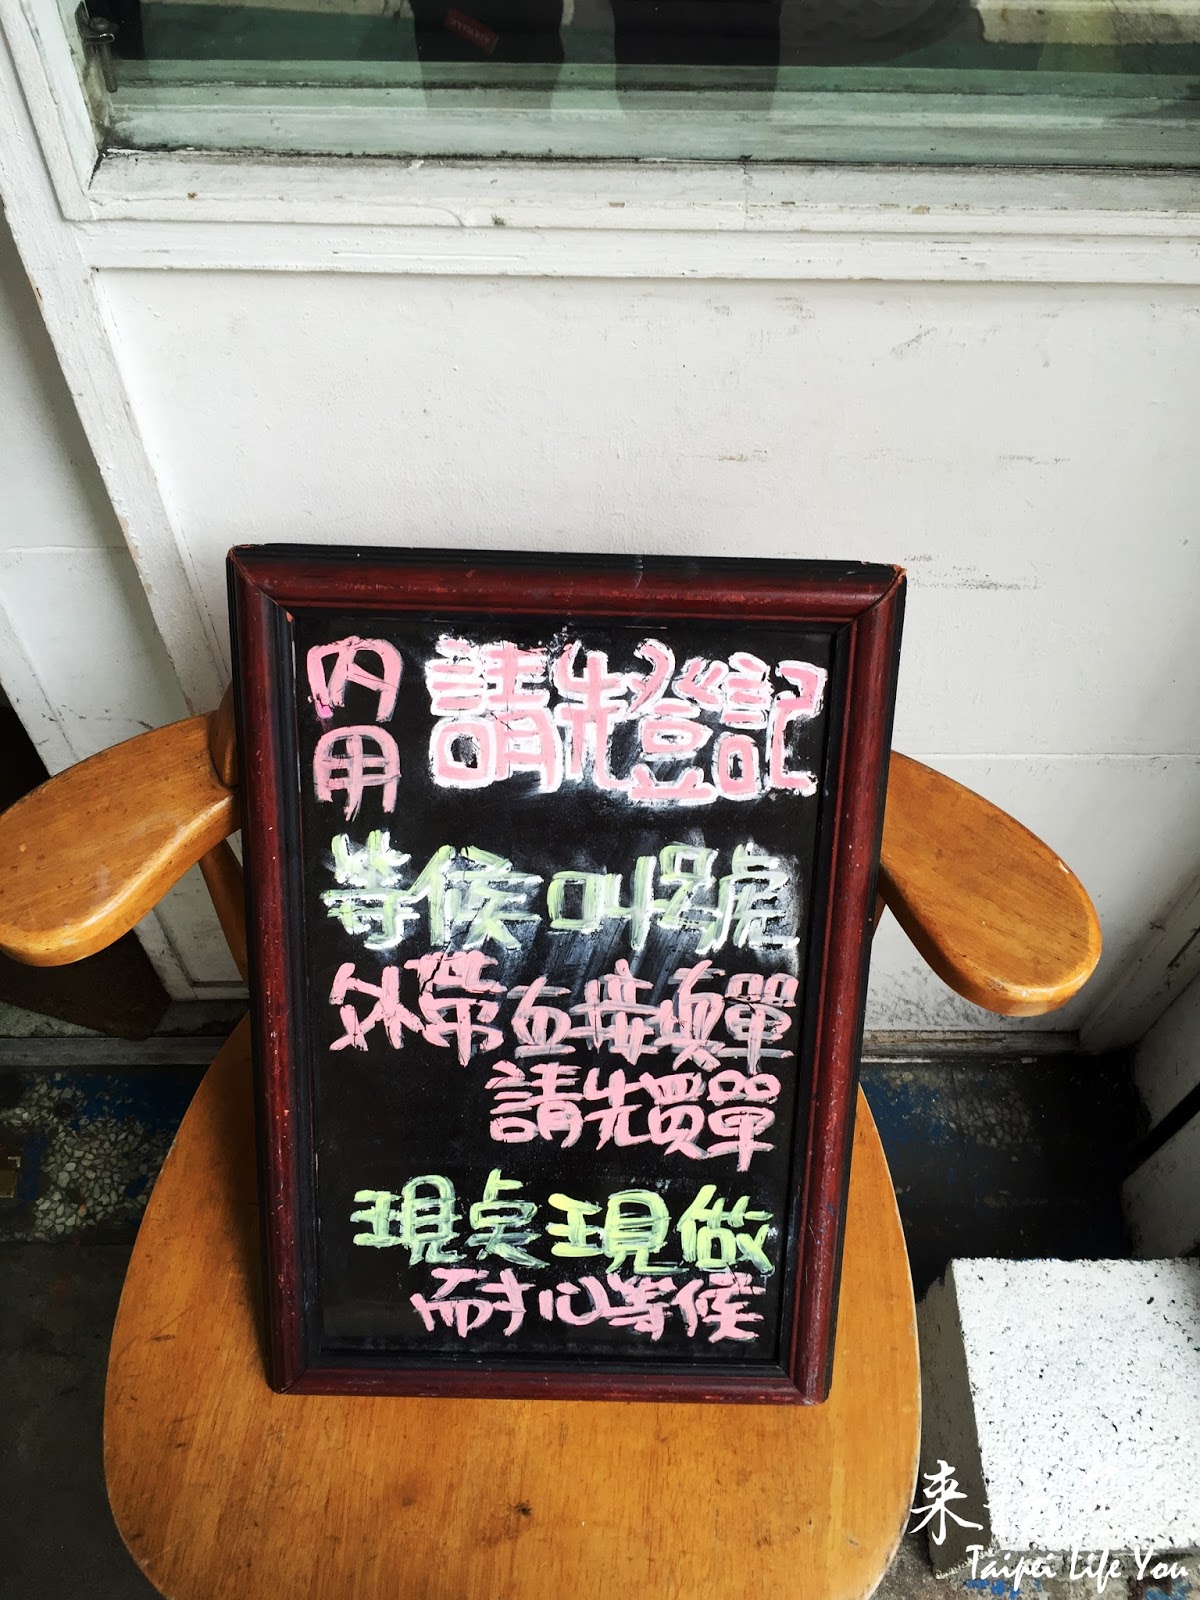 內用 請先登記
等候叫號
外帶直接填單
請先買單
現点現做
耐心等候
来
Taipei Life You